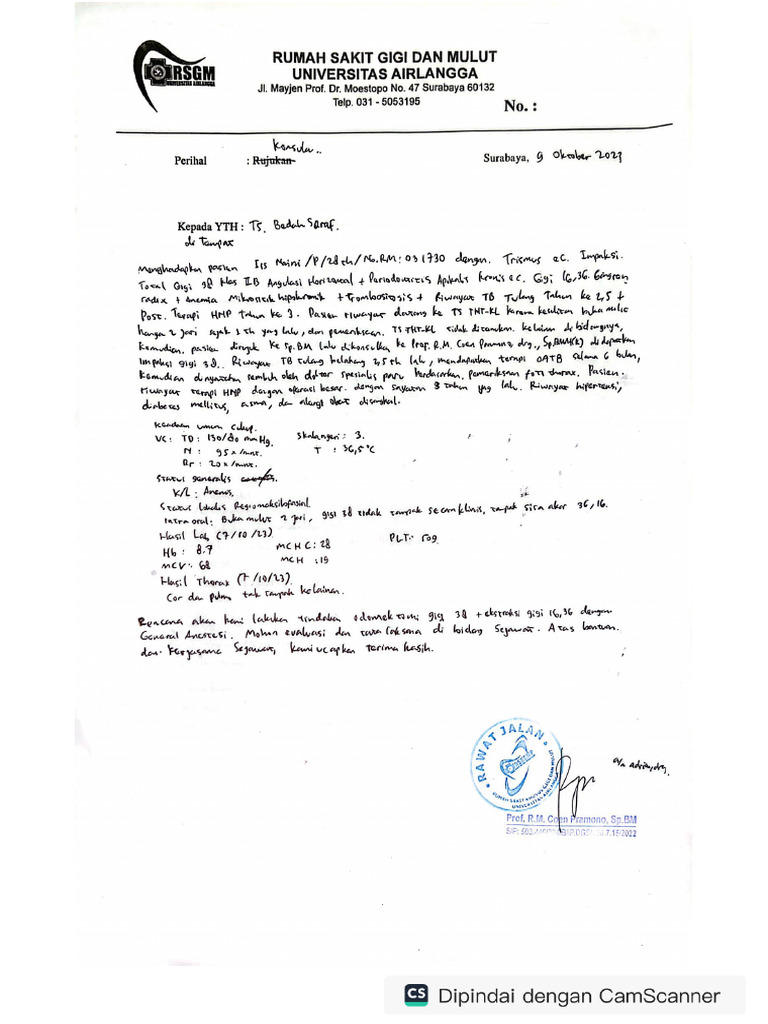 RSGM
UNIVERSITAS AIRLANGGA
RUMAH SAKIT GIGI DAN MULUT
UNIVERSITAS AIRLANGGA
Jl. Mayjen Prof. Dr. Moestopo No. 47 Surabaya 60132
Telp. 031 - 5053195
No. :
Konsulan..
Perihal : Rujukan
Surabaya, 9 Oktober 2023
Kepada YTH : TS. Bedah Saraf.
di Tempat
Menghadapkan pasien Iis Naini /P/28th/No.RM: 031730 dengan. Trismus e.c. Impaksi.
Total Gigi 38 klas IIB Angulasi Horizontal + Periodontitis Apikalis Kronis e.c. Gigi 16,36 Gangren
radix + Anemia Mikrositik hipokromik + Trombositosis + Riwayat TB Tulang Tahun ke 2,5 +
Post. Terapi HNP tahun ke 3. Pasien riwayat datang ke TS THT-KL karena kesulitan buka mulut
hanya 2 jari sejak 1 th yang lalu, dan pemeriksaan. TS THT-KL tidak ditemukan. kelainan di bidangnya,
Kemudian. pasien dirujuk ke Sp.BM lalu dikonsulkan ke Prof. R.M. Coen Pramono drg., Sp.BMM(K) didapatkan
Impaksi gigi 38. Riwayat TB tulang belakang 2,5 th lalu, mendapatkan terapi OATB selama 6 bulan,
Kemudian dinyatakan sembuh oleh dokter spesialis paru berdasarkan. pemeriksaan foto thorax. Pasien.
riwayat terapi HNP dengan operasi besar. dengan sayatan 3 tahun yang lalu. Riwayat hipertensi,
diabetes mellitus, asma, dan alergi obat disangkal.
Keadaan umum cukup.
VS : TD : 130/80 mmHg. Skala nyeri : 3.
N : 95 x/mnt. T : 36,5°C
Rr : 20 x/mnt.
Status generalis
K/L : Anemis.
Status Lokalis Regio maksilofasial.
Intra oral : Buka mulut 2 jari, gigi 38 tidak tampak secara klinis, tampak sisa akar 36, 16.
Hasil Lab (7/10/23) PLT: 509
Hb : 8.7 MCHC : 28
MCV : 68 MCH : 19
Hasil Thorax (7/10/23).
Cor dan pulmo tak tampak kelainan.
Rencana akan kami lakukan tindakan odontektomi gigi 38 + ekstraksi gigi 16,36 dengan
General Anestesi. Mohon evaluasi dan tata laksana di bidang Sejawat. Atas bantuan.
dan Kerjasama Sejawat, kami ucapkan terima kasih.
RAWAT JALAN
RUMAH SAKIT KHUSUS GIGI DAN MULUT
UNIVERSITAS AIRLANGGA
a/n
Prof. R.M. Coen Pramono, Sp.BM
CS Dipindai dengan CamScanner